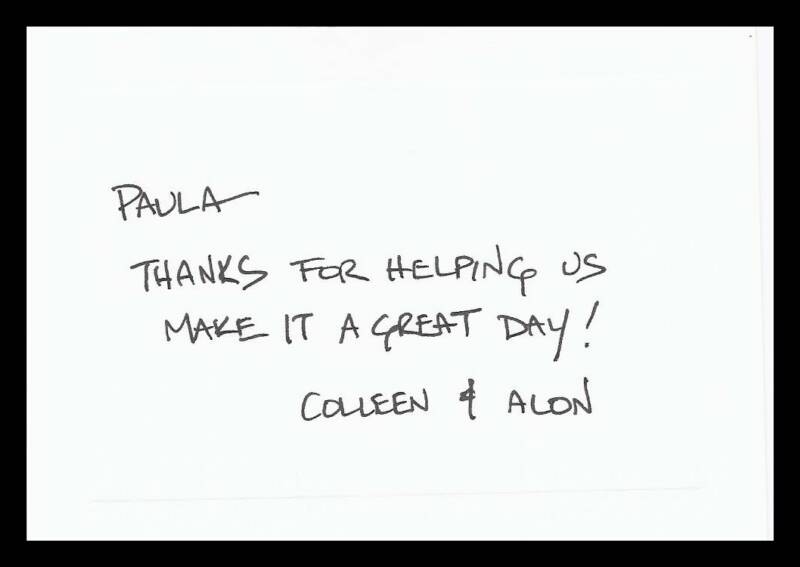 PAULA—
THANKS FOR HELPING US
MAKE IT A GREAT DAY!
COLLEEN & ALON